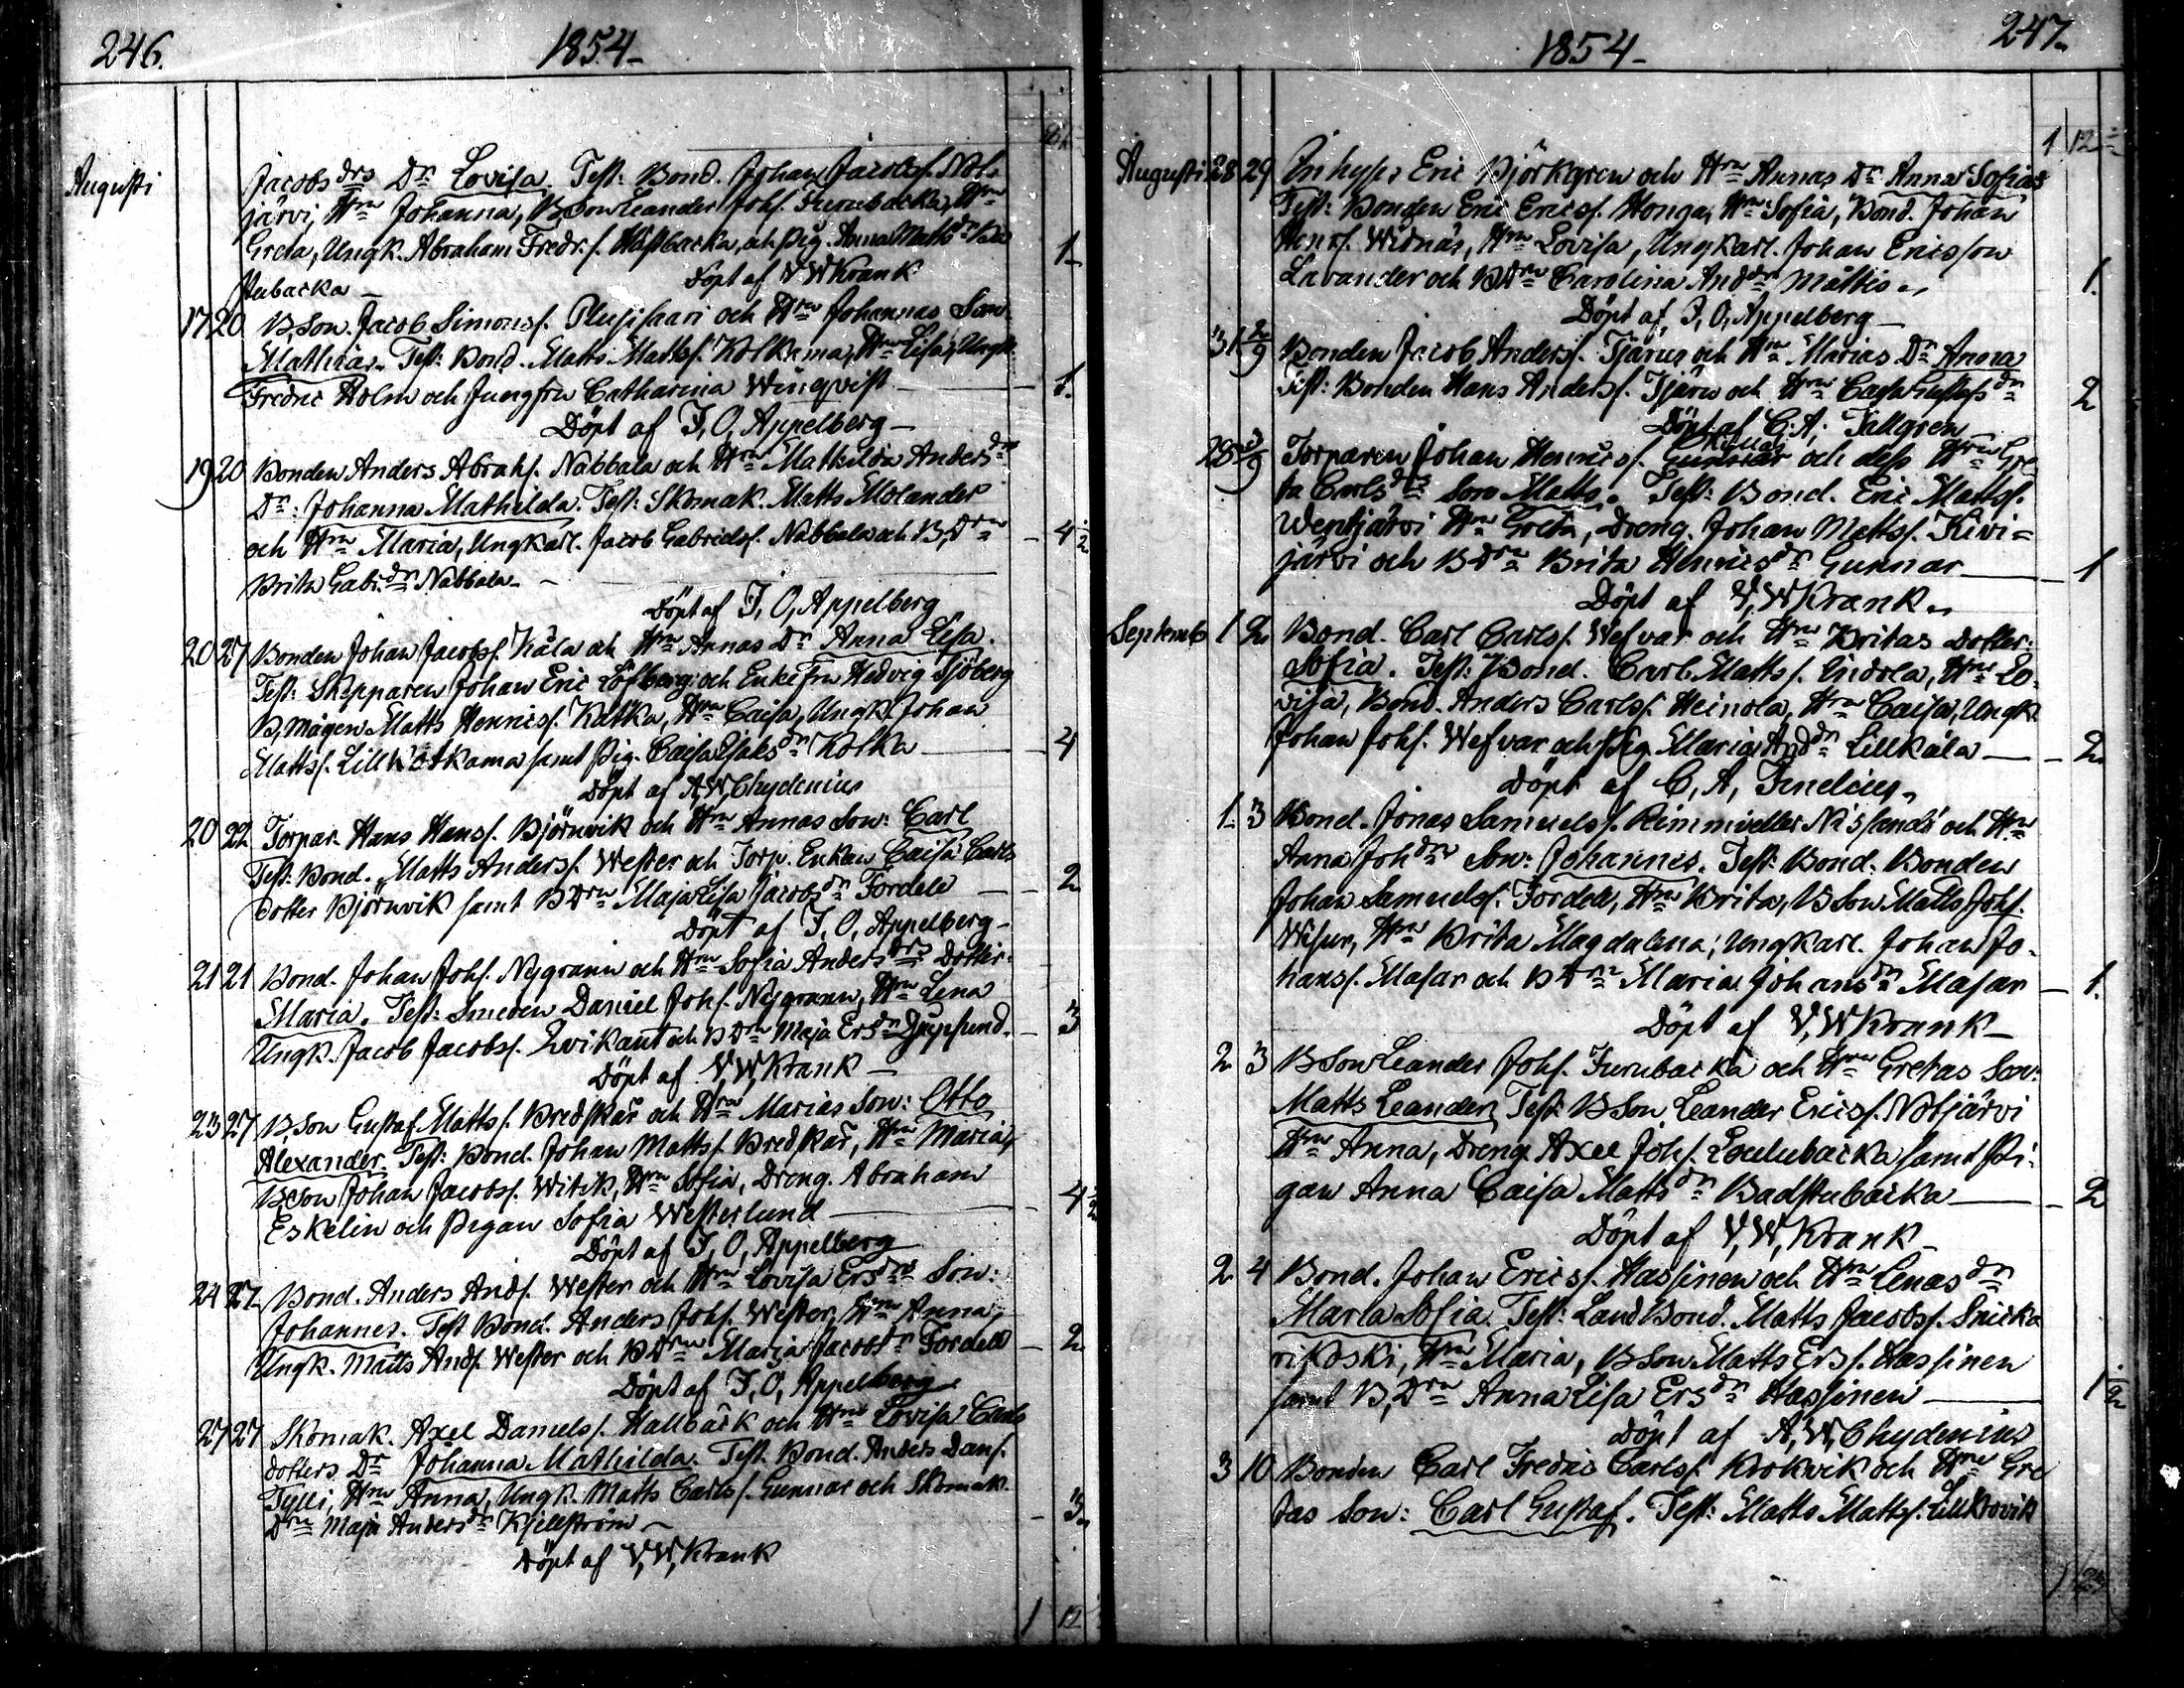 246. 1854-
Augusti Jacobsdrs Dr Lovisa Test: Bond. Johan Jacobss. Not-
järvi, Hru Johanna, BSon Leander Johs. Furubacka, Hru
Greta, Ungk. Abraham Fredr.s. Håstbacka, och Pig. Anna Mattsdr Bad
stubacka — Döpt af V W Krank 1-
17 20 B,Son. Jacob Simonss. och Hru Johannas Son
Mathias. Test: Bond. Matts Mattss. Kolkama, Hru Lisa, Ungk.
Fredric Holm och Jungfru Catharina Winqvist — 1.
Döpt af J, O, Appelberg —
19 20 Bonden Anders Abrahs. Nabbala och Hru Mathilda Andersdrs
Dr: Johanna Mathilda. Test: Skomak. Matts Molander
och Hru Maria, Ungkarl. Jacob Gabrielss. Nabbala och B,Dru - 4 1/2
Brita Gabr.dr Nabbala —
Döpt af J, O, Appelberg
20 27 Bonden Johan Jacobss. Kåla och Hru Annas Dr Anna Lisa.
Test: Skepparen Johan Eric Löfberg och Enkefru Hedvig Sjöberg
B,Mågen Matts Henricss. Katka, Hru Caisa, Ungk. Johan
Mattss. Lill Kotkama samt Pig. Caisa Isaksdr Kolka — 4
Döpt af A, W, Chydenius
20 22 Torpar. Hans Hanss. Björnvik och Hru Annas Son: Carl
Test: Bond. Matts Anderss. Wester och Torp. Enkan Caisa Carls
dotter Björnvik samt BDru Maja Lisa Jacobsdr Fordell — 2
Döpt af J, O, Appelberg —
21 21 Bond. Johan Johs. Nygrann och Hru Sofia Andersdrs Dotter:
Maria. Test: Smeden Daniel Johs. Nygrann, Hru Lena
Ungk. Jacob Jacobss. och BDru Maja Ersdr — 3
Döpt af V W Krank —
23 27 B,Son Gustaf Mattss. Bredskär och Hru Marias Son: Otto
Alexander. Test: Bond. Johan Mattss. Bredskär, Hru Maria,
BSon Johan Jacobss. Witick, Hru Sofia, Dreng. Abraham
Eskelin och Pigan Sofia Westerlund — 4 1/2
Döpt af J, O, Appelberg
24 27 Bond. Anders Ands. Wester och Hru Lovisa Ersdrs Son:
Johannes. Test Bond. Anders Johs. Wester, Hru Anna,
Ungk. Matts Ands. Wester och BDru Maria Jacobsdr Fordell — 2
Döpt af J, O, Appelberg
27 27 Skomak. Axel Daniels s. Hallbäck och Hru Lovisa Carls
dotters Dr Johanna Mathilda. Test. Bond. Anders Dans.
Tylli, Hru Anna, Ungk. Matts Carlss. Gunnar och Skomak.
Dru Maja Andersdr Kjellström — 3
Döpt af V, W, Krank
1 12
1854- 247.
1 12
Augusti 28 29 Inhyses Eric Björkgren och Hru Annas Dr Anna Sofia
Test: Bonden Eric Ericss. Honga, Hru Sofia, Bond. Johan
Henrs. Widnäs, Hru Lovisa, Ungkarl. Johan Ericsson
Lavander och BDru Carolina Anddr Mattis — 1.
Döpt af, J, O, Appelberg —
31 2/9 Bonden Jacob Anderss. Tjäru och Hru Marias Dr Anna
Test: Bonden Hans Anderss. Tjäru och Hru Caisa Gustafsdr 2
Döpt af C. A. Tallgren
28 3/9 Torparen Johan Henricss. Gunnar och dess Hru Gre
ta Carlsdrs Son Matts. Test: Bond. Eric Mattss.
Wentjärvi Hru Greta, Dreng. Johan Mattss. Kivi=
järvi och BDru Brita Henricsdr Gunnar — 1
Döpt af V, W Krank.
Septemb 1 2 Bond. Carl Carlss. Wefvar och Hru Britas Dotter:
Sofia. Test: Bond. Carl Mattss. Indola, Hru Lo-
visa, Bond. Anders Carlss. Heinola, Hru Caisa, Ungk.
Johan Johs. Wefvar och Pig. Maria Anddr Lillkåla — 2
Döpt af C, A,
1. 3 Bond. Jonas Samuelss. Rimmi eller och Hru
Anna Johdrs Son: Johannes. Test: Bond. Bonden
Johan Samuelss. Fordell, Hru Brita, BSon Matts Johs.
Hru Brita Magdalena, Ungkarl. Johan Jo-
hanss. Masar och BDru Maria Johansdr Masar — 1.
Döpt af V, W Krank —
2 3 BSon Leander Johs. Furubacka och Hru Gretas Son:
Matts Leander Test: BSon Leander Ericss. Notjärvi
Hru Anna, Dreng. Axel Johs. Loulubacka samt Pi-
gan Anna Caisa Mattsdr Badstubacka — 2
Döpt af V, W, Krank
2 4 Bond. Johan Ericss. Hassinen och Hru Lenas dr
Maria Sofia. Test: Land Bond. Matts Jacobss. Snicka
rikoski, Hru Maria, BSon Matts Erss. Hassinen
samt B,Dru Anna Lisa Ersdr Hassinen — 1 1/2
Döpt af A, W, Chydenius
3 10 Bonden Carl Fredric Carlss. Krokvik och Hru Gre
tas Son: Carl Gustaf. Test: Matts Mattss. Lillkrovik